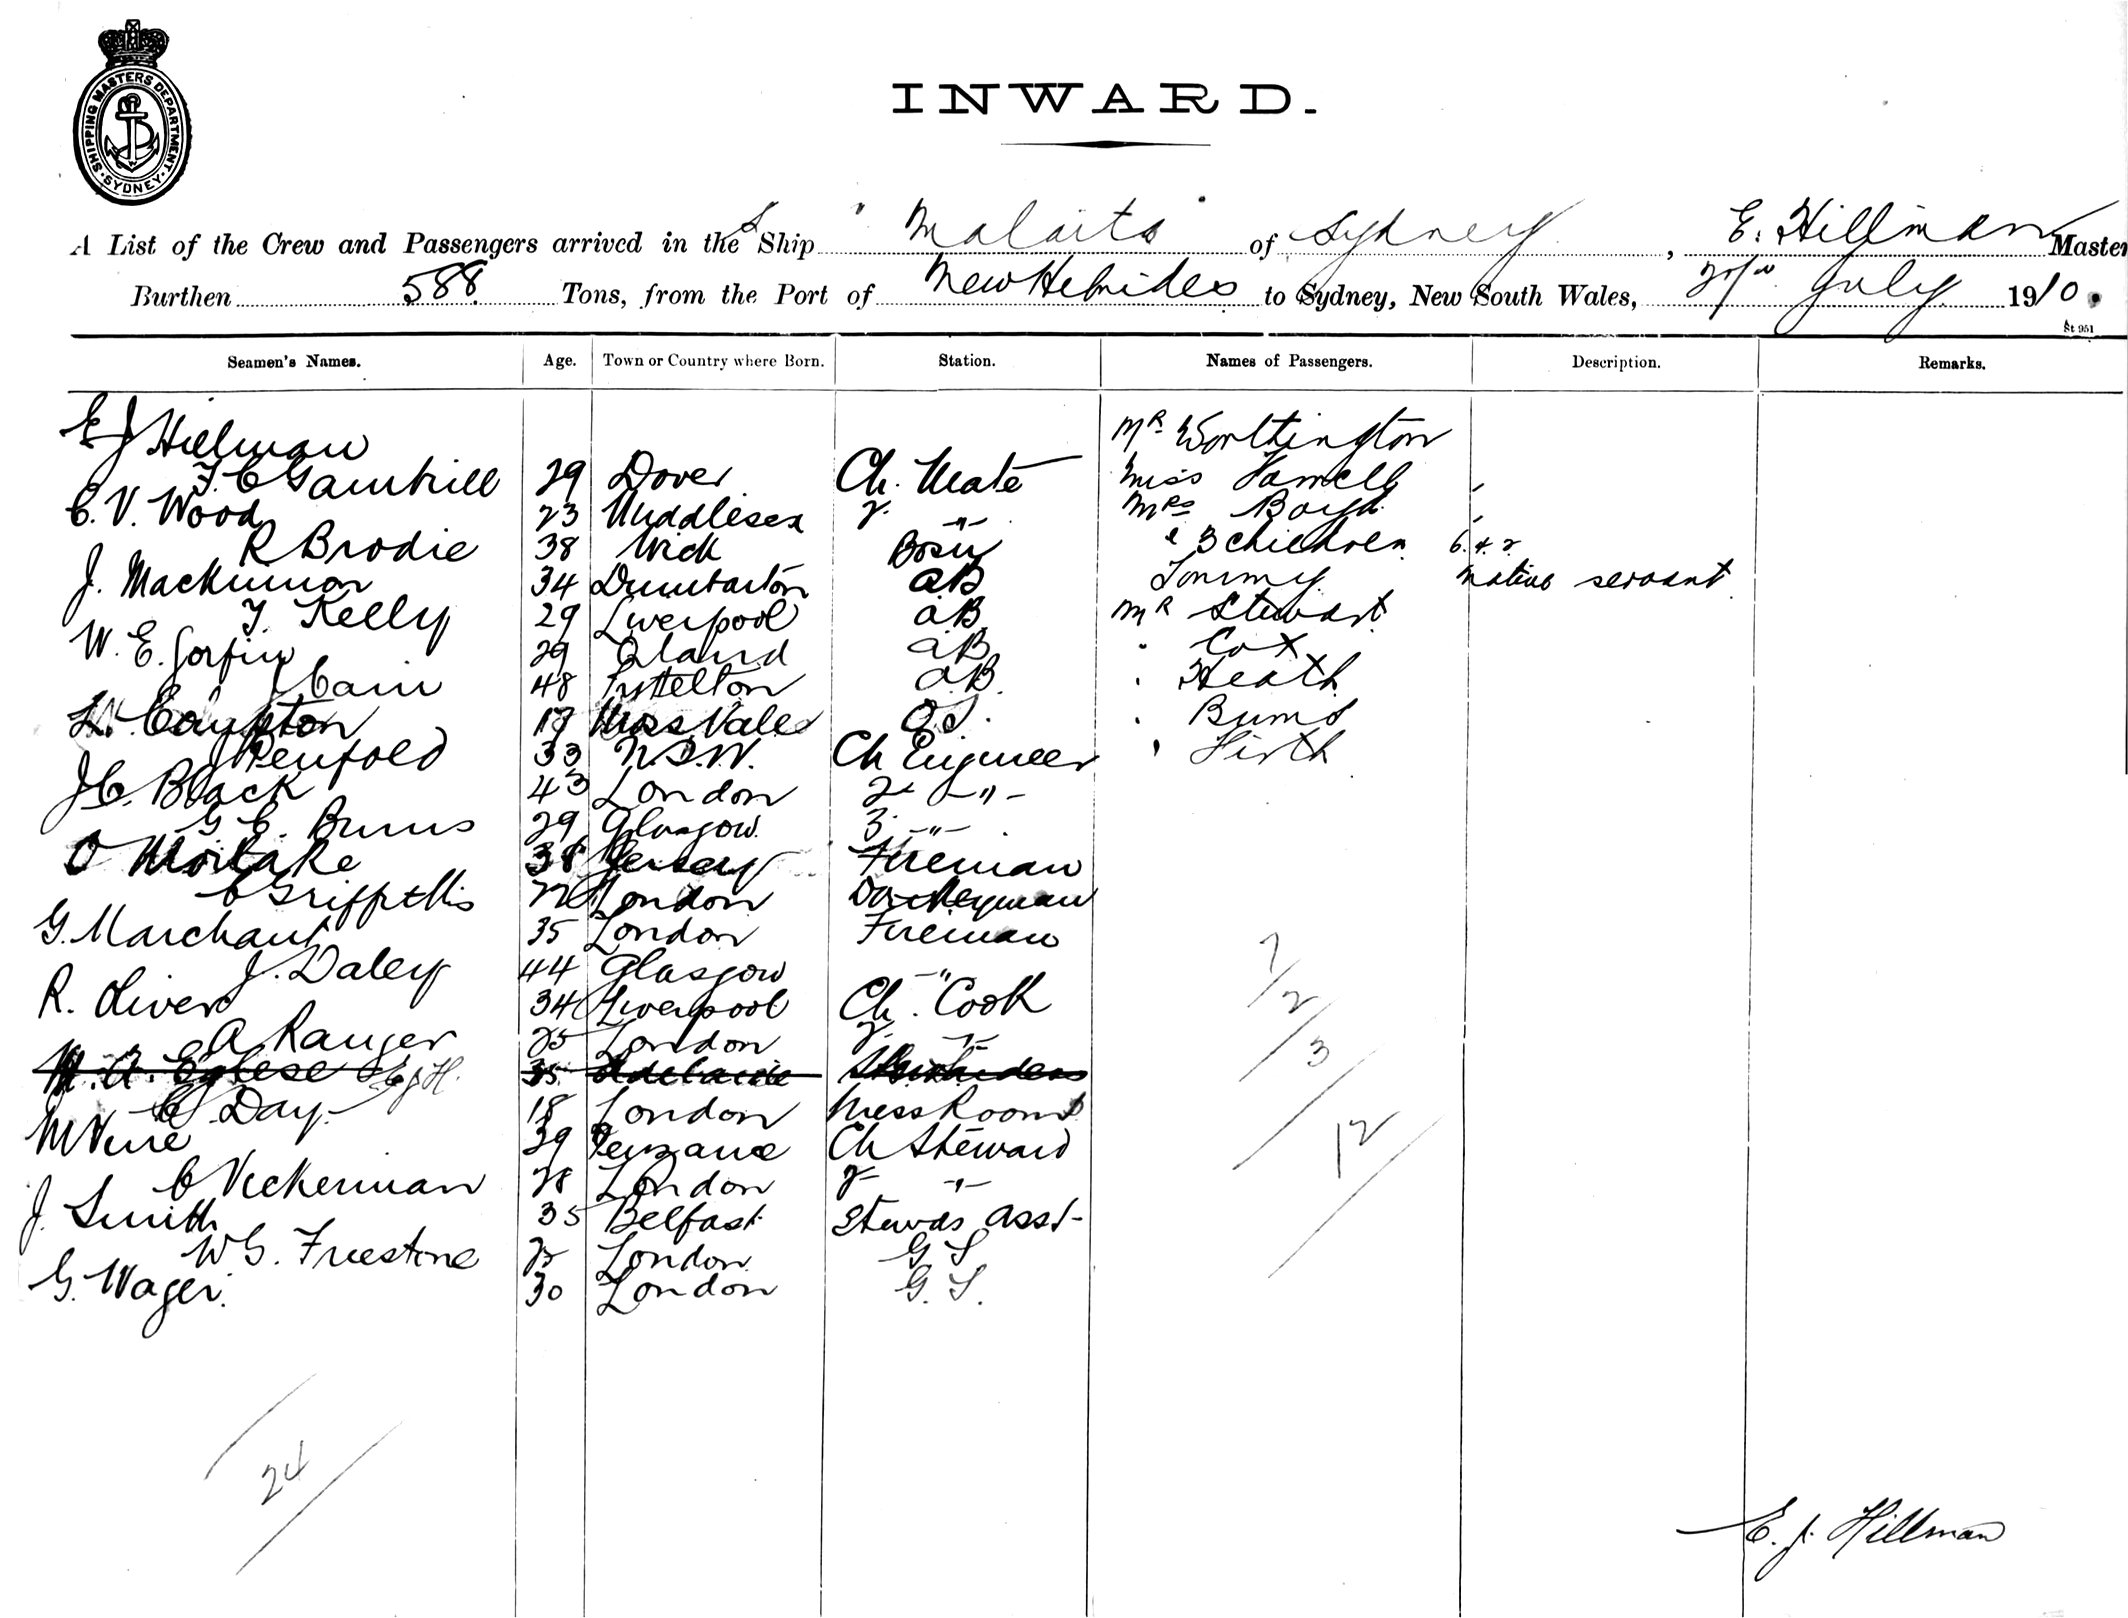 SHIPPING MASTERS DEPARTMENT
· SYDNEY ·
INWARD.
A List of the Crew and Passengers arrived in the S Ship "Malaita" of Sydney, E. Hillman Master
Burthen 588 Tons, from the Port of New Hebrides to Sydney, New South Wales, July 1910.
St 951
Seamen's Names. Age. Town or Country where Born. Station. Names of Passengers. Description. Remarks.
E J Hillman Mr Worthington
29 Dover Ch. Mate Miss
C. V. Wood 23 Middlesex 2 -"- Mrs Boyd
R Brodie 38 Wick Bosn & 3 Children 6. 4. 2
J. Mackinnon 34 Dumbarton AB Tommy native servant
T Kelly 29 Liverpool AB Mr Stewart
W. E. 29 Oland AB " Cox
J Cain 48 Lyttelton AB " Heath
Compton Moss Vale OS. " Burns
J Penfold 33 N.S.W. Ch Engineer " Firth
J C. Black 43 London 2 -"-
G C. Burns 29 Glasgow 3. -"-
O Morlake 38 Jersey Fireman
C Griffiths London Donkeyman
G. Marchant 35 London Fireman
J. Daley 44 Glasgow -"-
R. Oliver 34 Liverpool Ch. Cook
A Ranger 25 London 2 -"-
M. A. Eglese E J H. 35 Adelaide
C Day 18 London Mess Room S
M Vine 29 Penzance Ch Steward
C Veckerman 28 London 2 -"-
J. Smith 35 Belfast Stewds Asst
W G. Freestone London G S
G. Wager. 30 London G. S.
7
2
3
12
24
E. J. Hillman